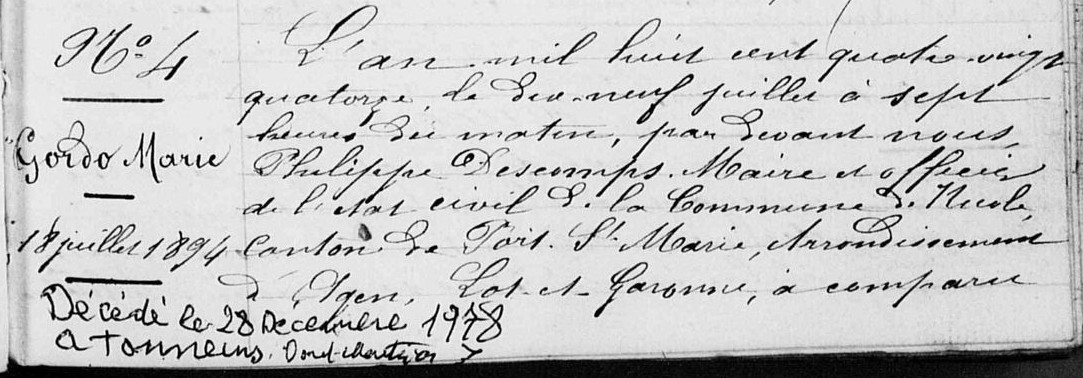 N° 4
Gordo Marie
18 juillet 1894
Décédé le 28 Decembre 1978
a Tonneins.
L'an mil huit cent quatre-vingt
quatorze, le dix-neuf juillet à sept
heures du matin, par devant nous,
Philippe Descomps. Maire et officier
de l'état civil de la Commune de Nicole,
canton de Port-Ste-Marie, Arrondissement
d'Agen, Lot-et-Garonne, a comparu